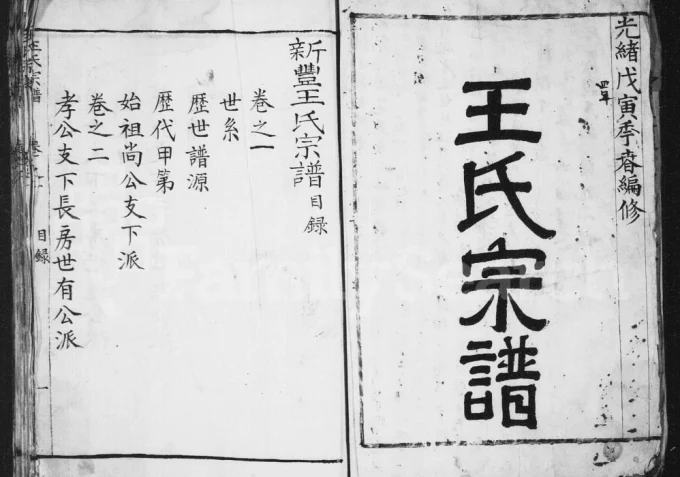 光緒戊寅季春編修
四年
王氏宗譜
新豐王氏宗譜目録
卷之一
世系
歷世譜源
歷代甲第
始祖尚公支下派
卷之二
孝公支下長房世有公派
王氏宗譜
目録
一